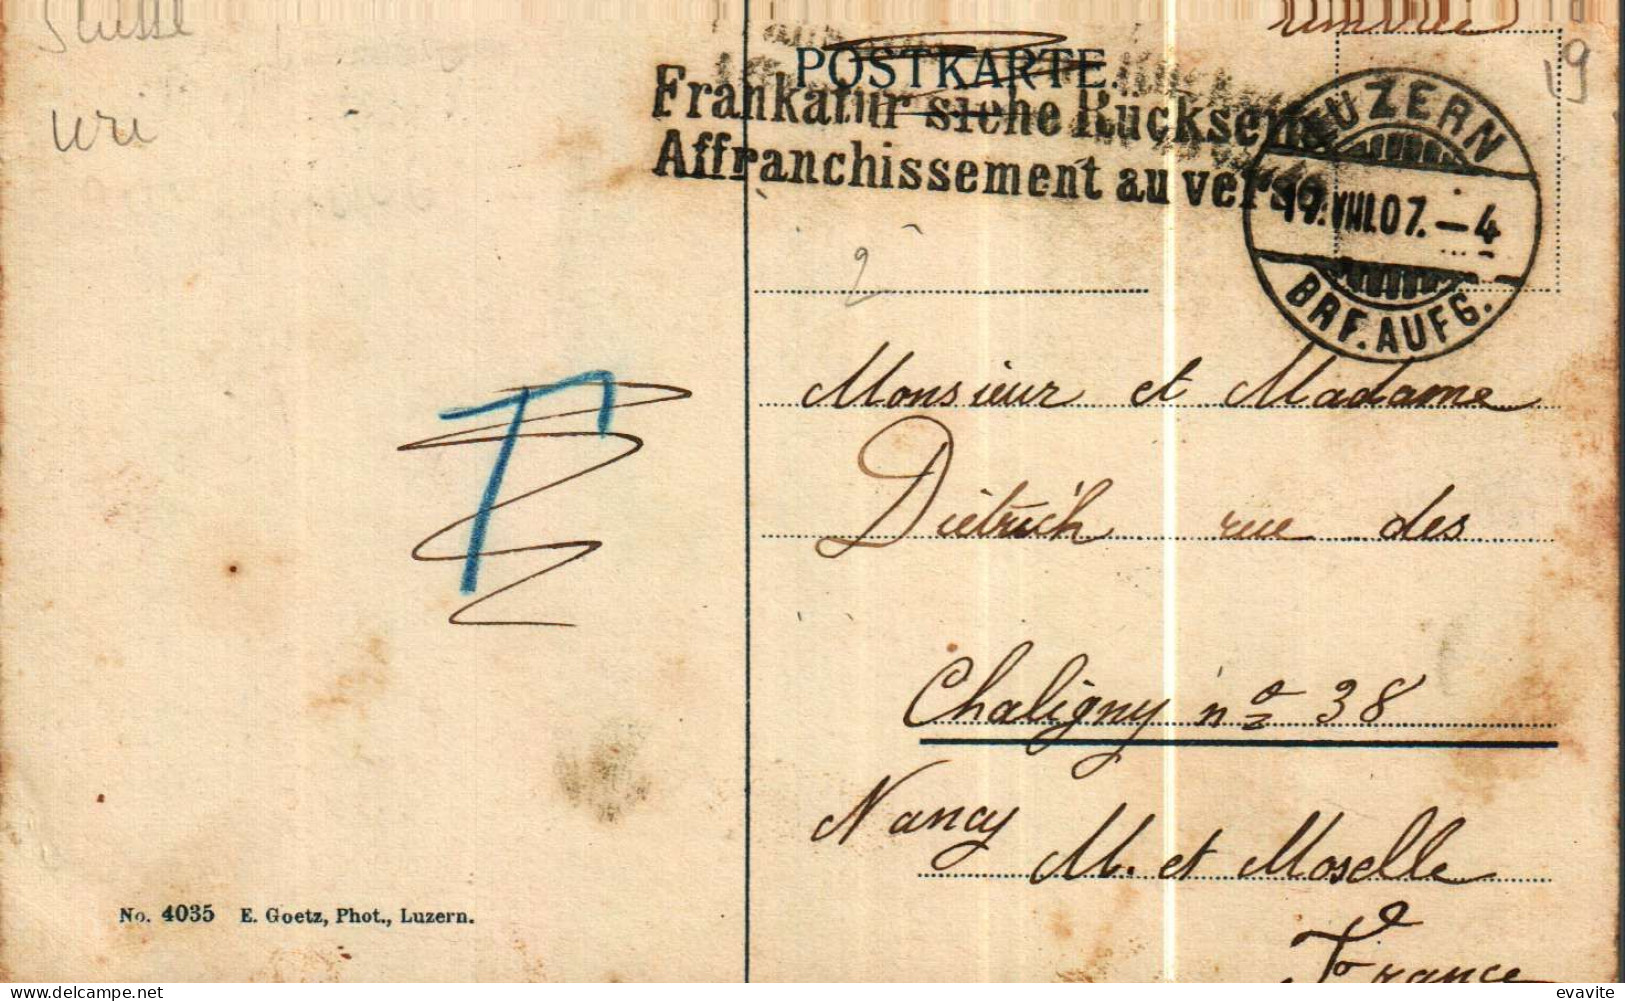 Suisse
Uri
timbrée
19
POSTKARTE.
Frankatur siehe Rückseite
Affranchissement au verso
LUZERN
19.VIII.07.–4
BRF.AUFG.
2
T
Monsieur et Madame
Dietrich rue des
Chaligny nº 38
Nancy
M. et Moselle
France
No. 4035 E. Goetz, Phot., Luzern.
evavite